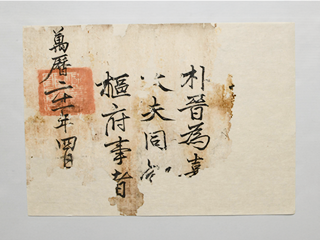 朴晉為嘉
大夫同知
樞府事者
萬曆二十一年四月日